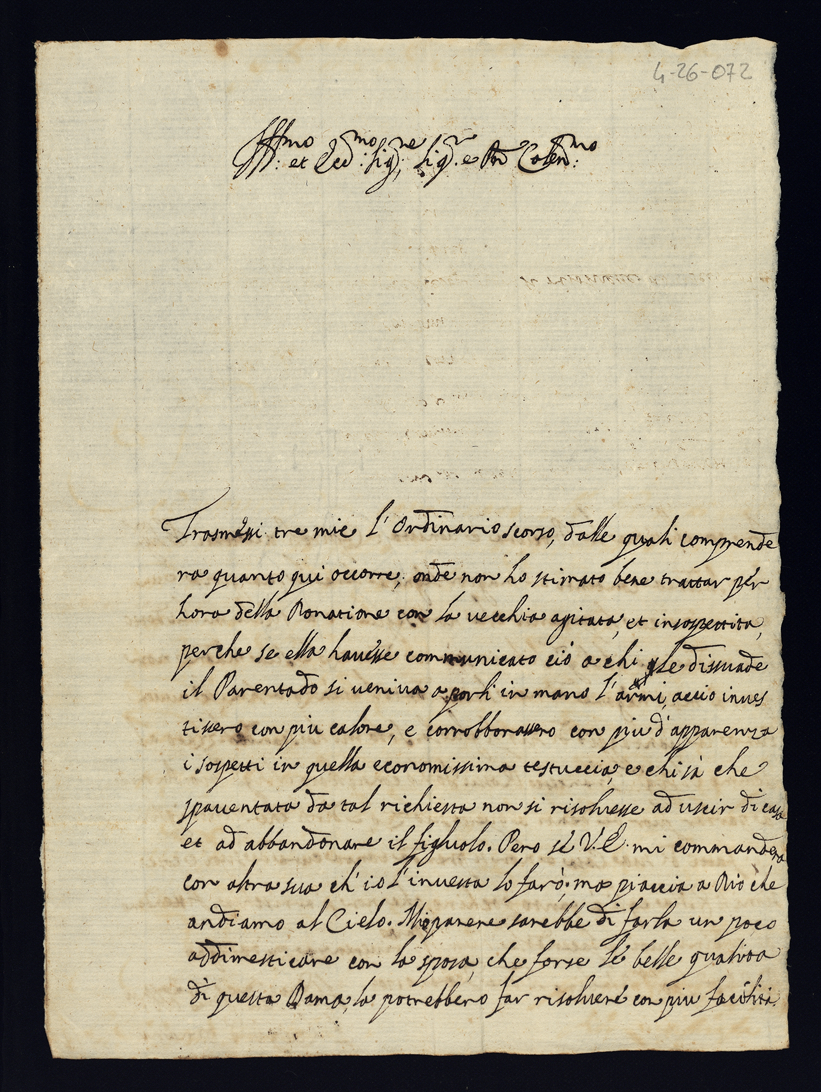 4-26-072
Ill.mo et Ecc.mo Sig.re, Sig.r e P.rn Colen.mo
Trasmessi tre mie l'Ordinario scorso, dalle quali comprende
rà quanto qui occorre, onde non ho stimato bene trattar per
hora della Donatione con la vecchia agitata, et insospettita,
perche se ella havesse communicato ciò a chi gle dissuade
il Parentado si veniva a porli in mano l'armi, acciò inves
tissero con piu calore, e corrobborassero con piu d'apparenza
i sospetti in quella economissima testuccia, e chi sà che
spaventata da tal richiesta non si risolvesse ad uscir di casa
et ad abbandonare il figliuolo. Però se V.E. mi commanderà
con altra sua ch'io l'investa lo farò, ma piaccia a Dio che
andiamo al Cielo. Mio parere sarebbe di farla un poco
addimesticare con la sposa, che forse le belle qualità
di questa Dama, la potrebbero far risolvere con piu facilità